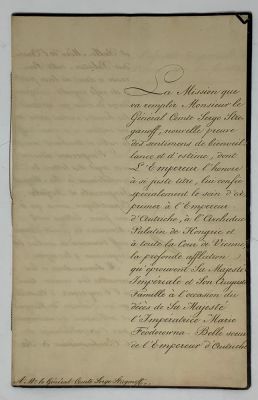 La Mission que
va remplir Monsieur le
Général Comte Serge Stro-
ganoff, nouvelle preuve
des sentimens de bienveil-
lance et d'estime, dont
L'Empereur l'honore
à si juste titre, lui confie
specialement le soin d'ex-
primer à l'Empereur
d'Autriche, à l'Archiduc
Palatin de Hongrie et
à toute la Cour de Vienne,
la profonde affliction
qu'éprouvent Sa Majesté
Impériale et Son Auguste
Famille à l'occasion du
décès de Sa Majesté
l'Impératrice Marie
Féodorowna Belle soeur
de l'Empereur d'Autriche
A. Mr. le Général Comte Serge Stroganoff.